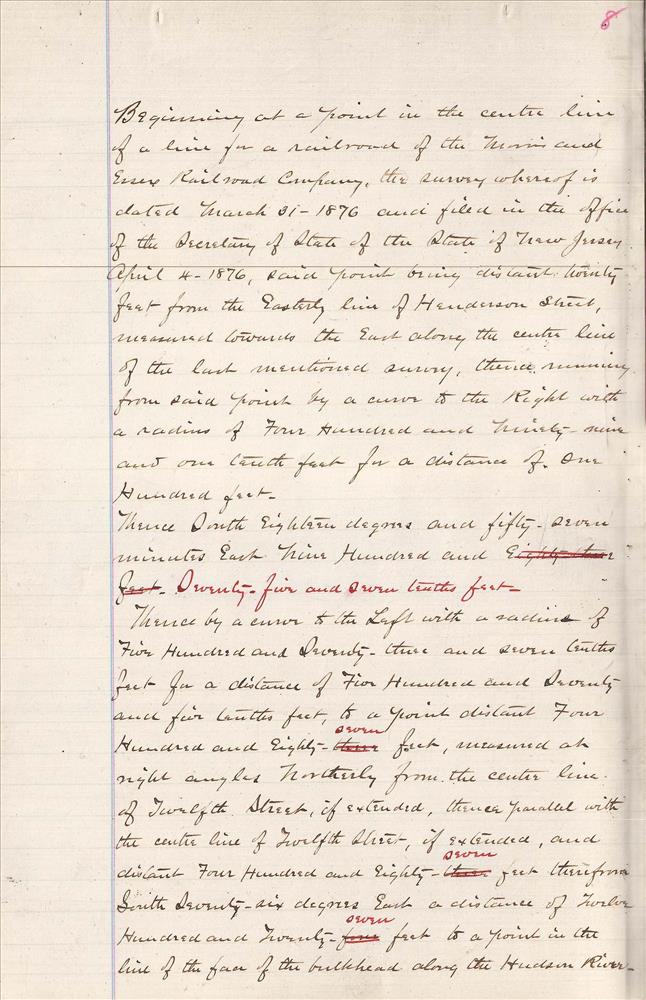 8
Beginning at a point in the centre line
of a line for a railroad of the Morris and
Essex Railroad Company, the survey whereof is
dated March 31-1876 and filed in the office
of the Secretary of State of the State of New Jersey
April 4-1876, said point being distant twenty
feet from the Easterly line of Henderson Street,
measured towards the East along the centre line
of the last mentioned survey, thence running
from said point by a curve to the Right with
a radius of Four Hundred and Ninety-nine
and one tenth feet for a distance of One
Hundred feet-
Thence South Eighteen degrees and fifty-seven
minutes East Nine Hundred and Eighty-three
feet- Seventy-five and seven tenths feet-
Thence by a curve to the Left with a radius of
Five Hundred and Seventy-three and seven tenths
feet for a distance of Five Hundred and Seventy
and five tenths feet, to a point distant Four
seven
Hundred and Eighty-three feet, measured at
right angles Northerly from the centre line
of Twelfth Street, if extended, thence parallel with
the centre line of Twelfth Street, if extended, and
seven
distant Four Hundred and Eighty-three feet therefrom
South Seventy-six degrees East a distance of Twelve
seven
Hundred and Twenty-four feet to a point in the
line of the face of the bulkhead along the Hudson River-